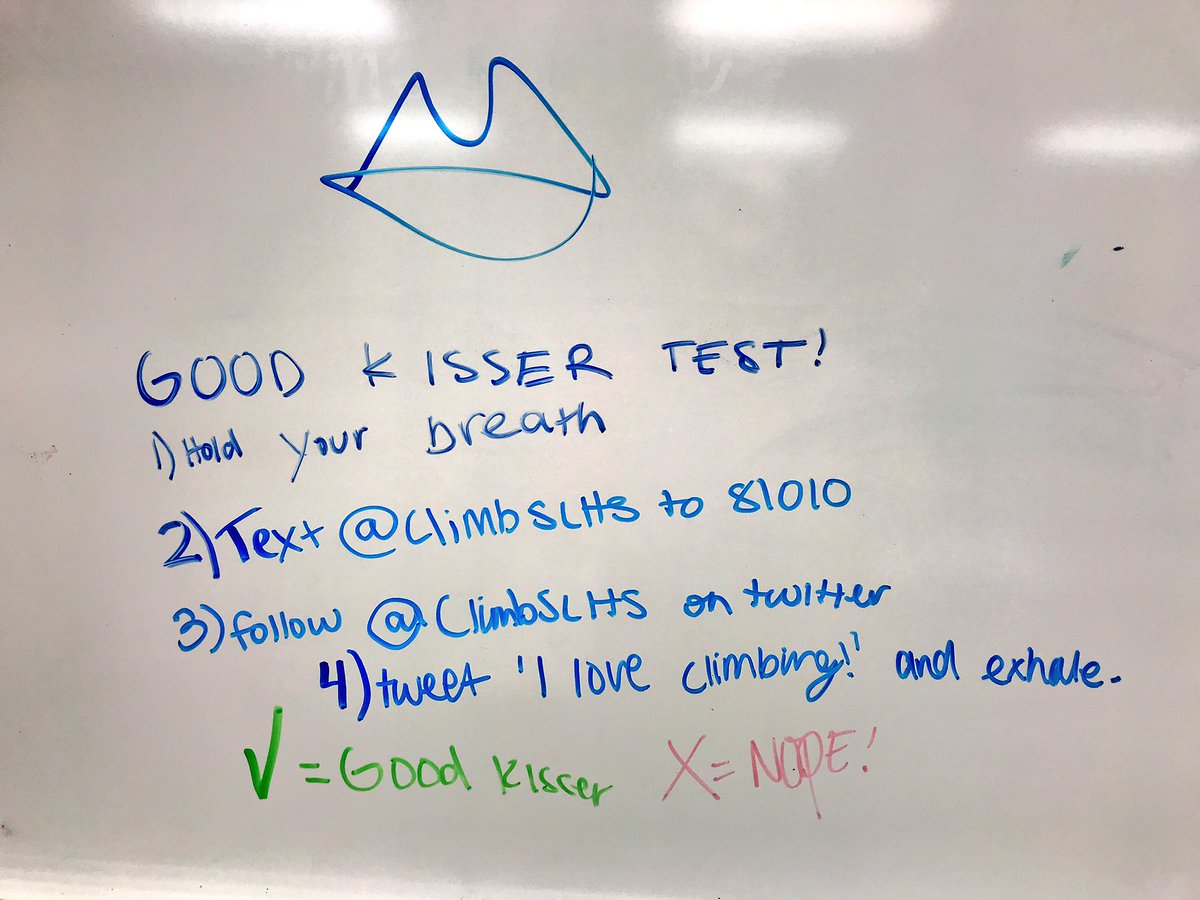 GOOD KISSER TEST!
1) Hold your breath
2) Text @ClimbSLHS to 81010
3) follow @ClimbSLHS on twitter
4) tweet 'I love climbing!' and exhale.
√ = Good kisser X = NOPE!